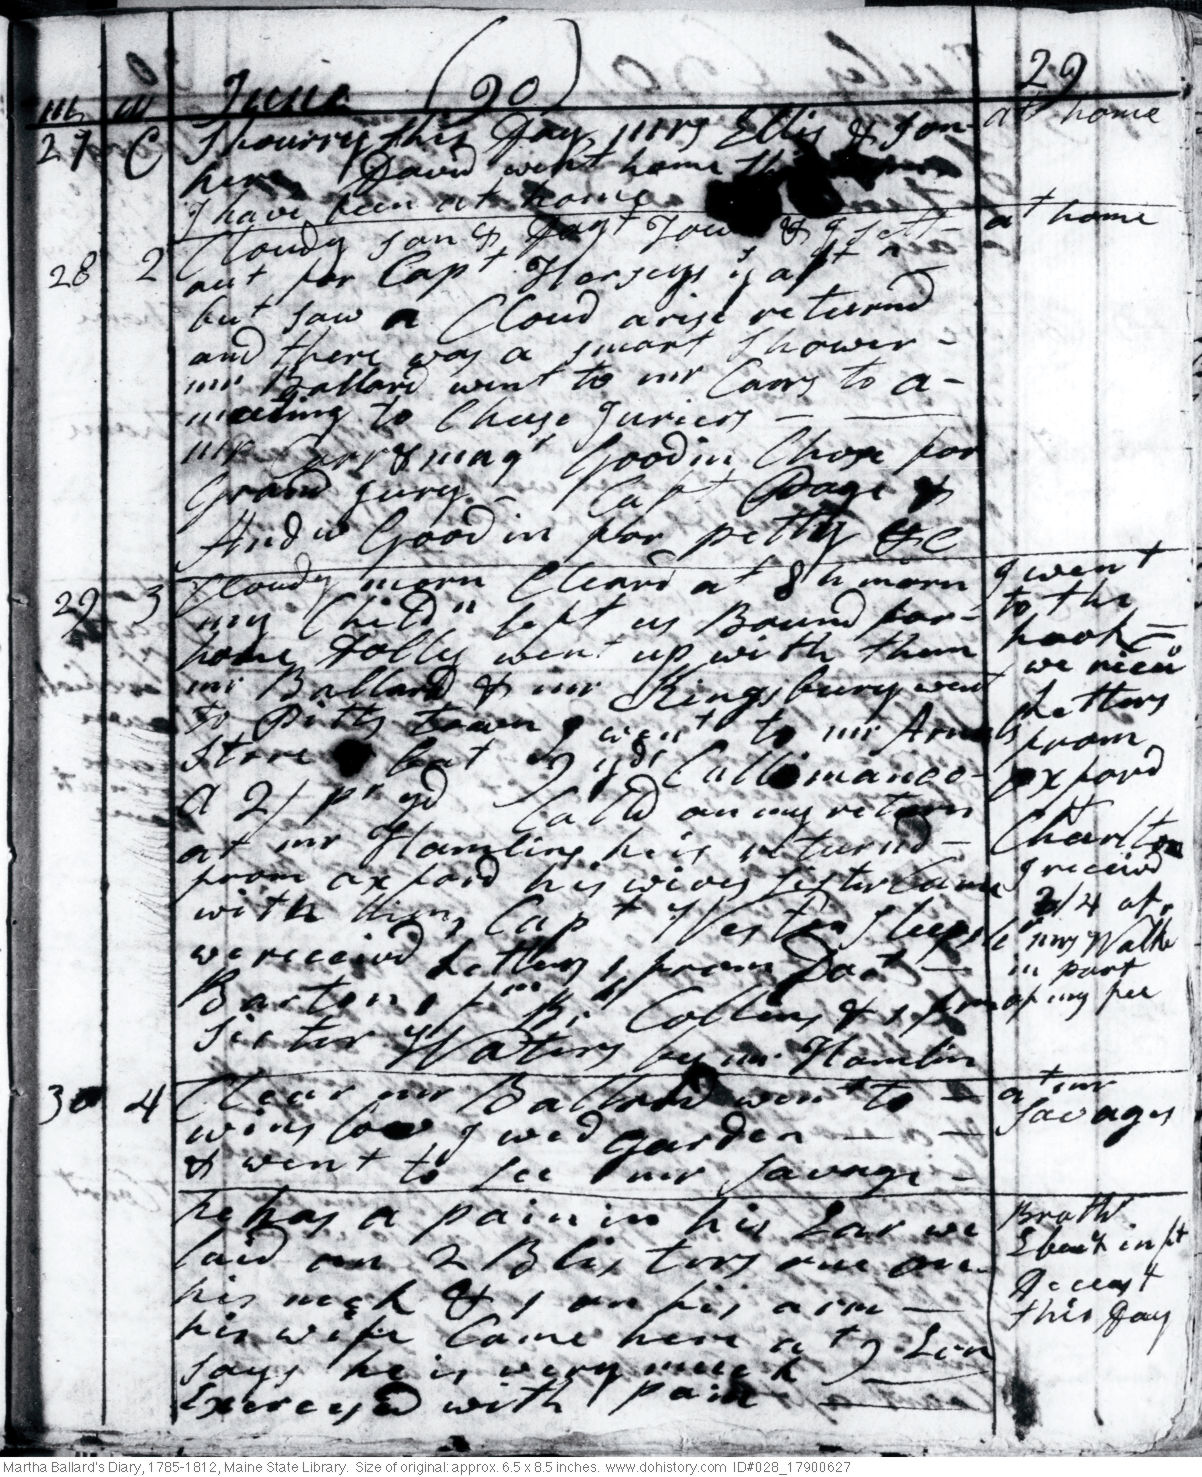 m w June (90) 29
27 C Showry this Day, mrs Ellis & son at home
here, David went home
I have been at home
28 2 Cloudy son & Dagt Town & I sett at home
out for Capt Herseys
but saw a Cloud arise returnd
and there was a smart shower -
mr Ballard went to mr Carrs to a -
meeting to Chuse Juriers -
mr Carr & magr Goodin Chose for
Grand Jury - Capt Page &
Andw Goodin for petty &C
29 3 Cloudy morn Cleard at 8 h morn I went
my Childn left us Bound for - to the
home Dolly went up with them hook -
mr Ballard & mr Kingsbury went we receivd
to Pitts town I went to mr Arnols Letters
Store bot 7 yds Callimanco - from
a 2/ pr yd Calld on my return oxford
at mr Hamlins, he is returnd - Charlton
from oxford his wives sister Came I receivd
with him, Capt Weston sleeps 2/4 of
we receivd Letters, from Doct - mrs Walke
Barton, 1 fm Br Collins & 1 from in part
Sister Waters by mr Hamlin of my fee
30 4 Clear mr Ballard went to - at mr
winslow, I weed garden - - savages
& went to see mr savage -
he has a pain in his Ear we Broth
laid on 2 Blistors one on
his neck & 1 on his arm - Deceast
his wife Came here at 7 Evn this Day
says he is very much
Exercisd with pain
Martha Ballard's Diary, 1785-1812, Maine State Library. Size of original: approx. 6.5 x 8.5 inches. www.dohistory.com ID#028_17900627